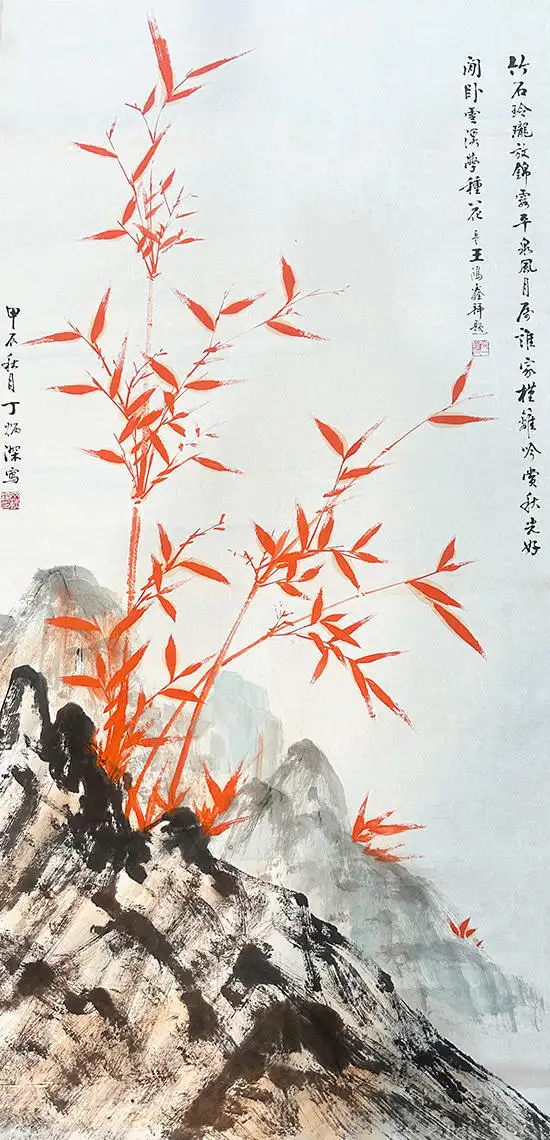 竹石玲瓏放錦霞平泉風月屬誰家槿籬吟賞秋光好
閒卧雲溪學種花 王鴻鑫拜題
甲辰秋月丁炳深寫